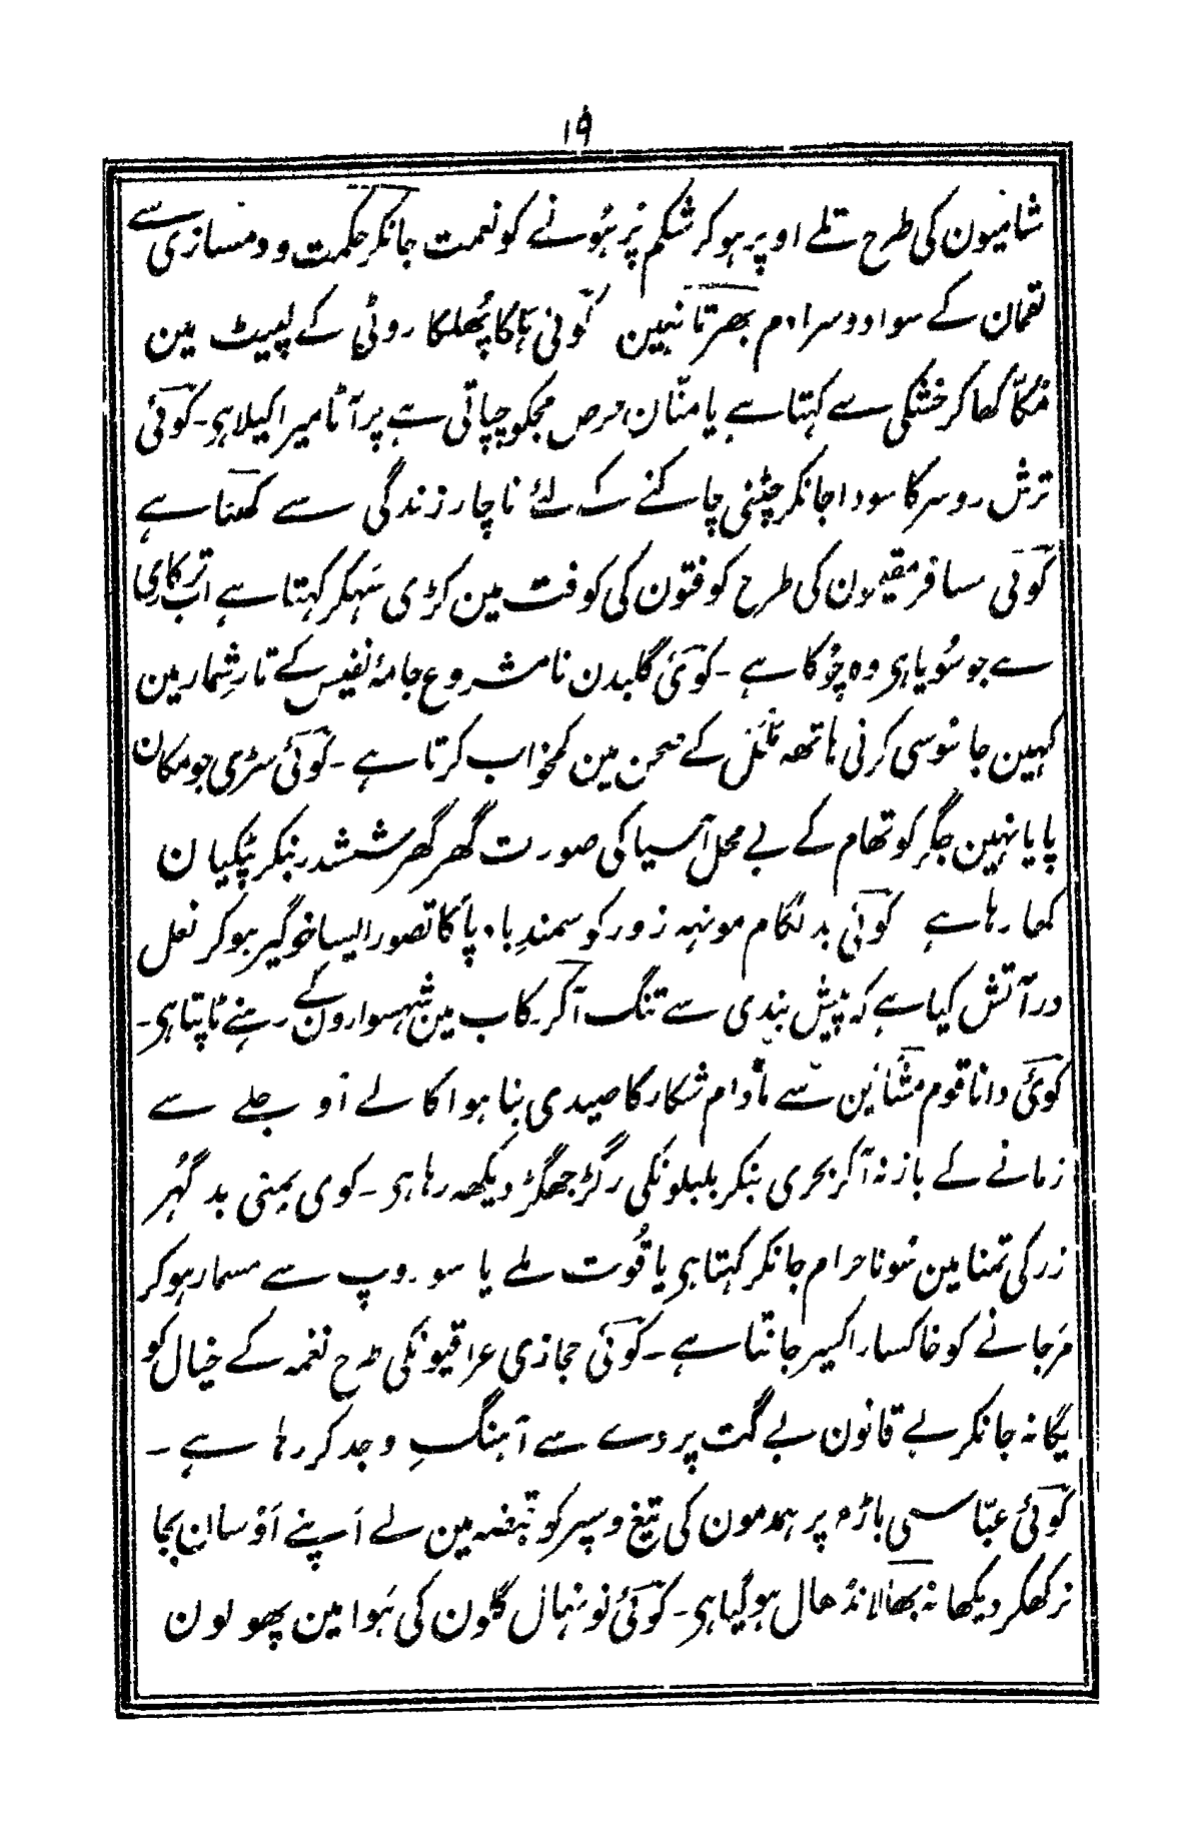 ۱۹
شامیون کی طرح تلے اوپر ہوکر شکم پُر ہُونے کو نعمت جانکر حکمت و دمسازی سے
نقمان کے سوا دوسرا دم بھرتا نہین کوئی ہلکا پُھلکا روٹی کے لپیٹ مین
مُکّا کھا کر خشکی سے کہتا ہے یا منّان قرص مجکو چپاتی ہے پر آٹا میرا کیلا ہی۔ کوئی
ترش رو سر کا سودا جانکر چٹنی چاکنے کے لئے ناچار زندگی سے کھٹا ہے
کوئی مسافر مقیمون کی طرح کوفتون کی کوفت مین کڑی سَہکر کہتا ہے اب ترکاری
ہے جو سُویا ہی وہ چُوکا ہے ۔ کوئی گلبدن نامشروع جامۂ نفیس کے تارِ شمار مین
کہین جا سُوسی کرنی ہاتھ مَلمَل کے صحن مین کمخواب کرتا ہے ۔ کوئی سڑی جو مکان
پایا نہین جگر کو تھام کے بے محل آسیا کی صورت گھر گھر ششدر بنکر ٹپکیان
کھا رہا ہے کوئی بد لگام مونہہ زور کو سمندِ باد پا کا تصور ایسا خوگیر ہوکر نعل
در آتش کیا ہے کہ پیش بندی سے تنگ آکر رکاب مین شہسوارون کے رہنے ٹاپتا ہی۔
کوئی دانا قوم مشائین سے مادام شکار کا صیدی بنا ہوا کالے او جلے سے
زمانے کے باز نہ آکر بحری بنکر بلبلونکی رگڑ جھگڑ دیکھ رہا ہی ۔ کوی یمنی بد گُہر
زر کی تمنا مین سُونا حرام جانکر کہتا ہی یا قُوت ملے یا سو روپ سے مسمار ہوکر
مَرجانے کو خاکسار اکسیر جانتا ہے ۔ کوئی حجازی عراقیونکی طرح نغمہ کے خیال کو
یگانہ جانکر بے قانون بے گت پردے سے آہنگِ وجد کر رہا ہے ۔
کوئی عبّاسی باڑہ پر ہمدمون کی تیغ و سپر کو قبضہ مین لے اَپنے اَوسان بجا
نرکھکر دیکھا نہ بھالا نڈھال ہو گیا ہی۔ کوئی نو نہال گلون کی ہَوا مین پھولون